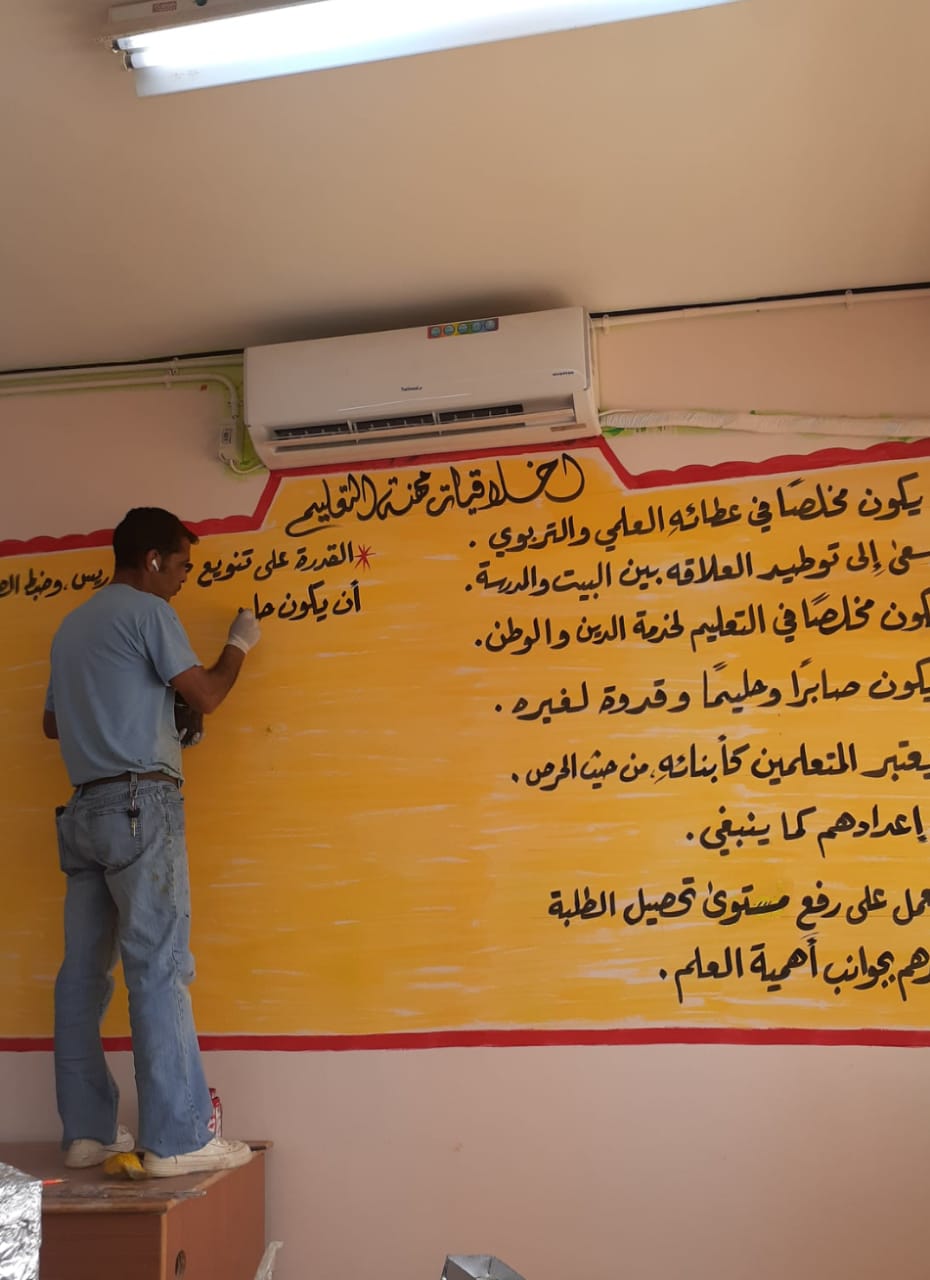 اخلاقيات مهنة التعليم
يكون مخلصًا في عطائهِ العلمي والتربوي .
إلى توطيد العلاقه بين البيت والمدرسة .
مخلصًا في التعليم لخدمة الدين والوطن .
يكون صابرًا وحليمًا وقدوة لغيره .
يعتبر المتعلمين كأبنائهِ من حيث الحرص .
إعدادهم كما ينبغي .
على رفع مستوى تحصيل الطلبة
بجوانب أهمية العلم .
القدرة على تنويع وضبط
أن يكون حا